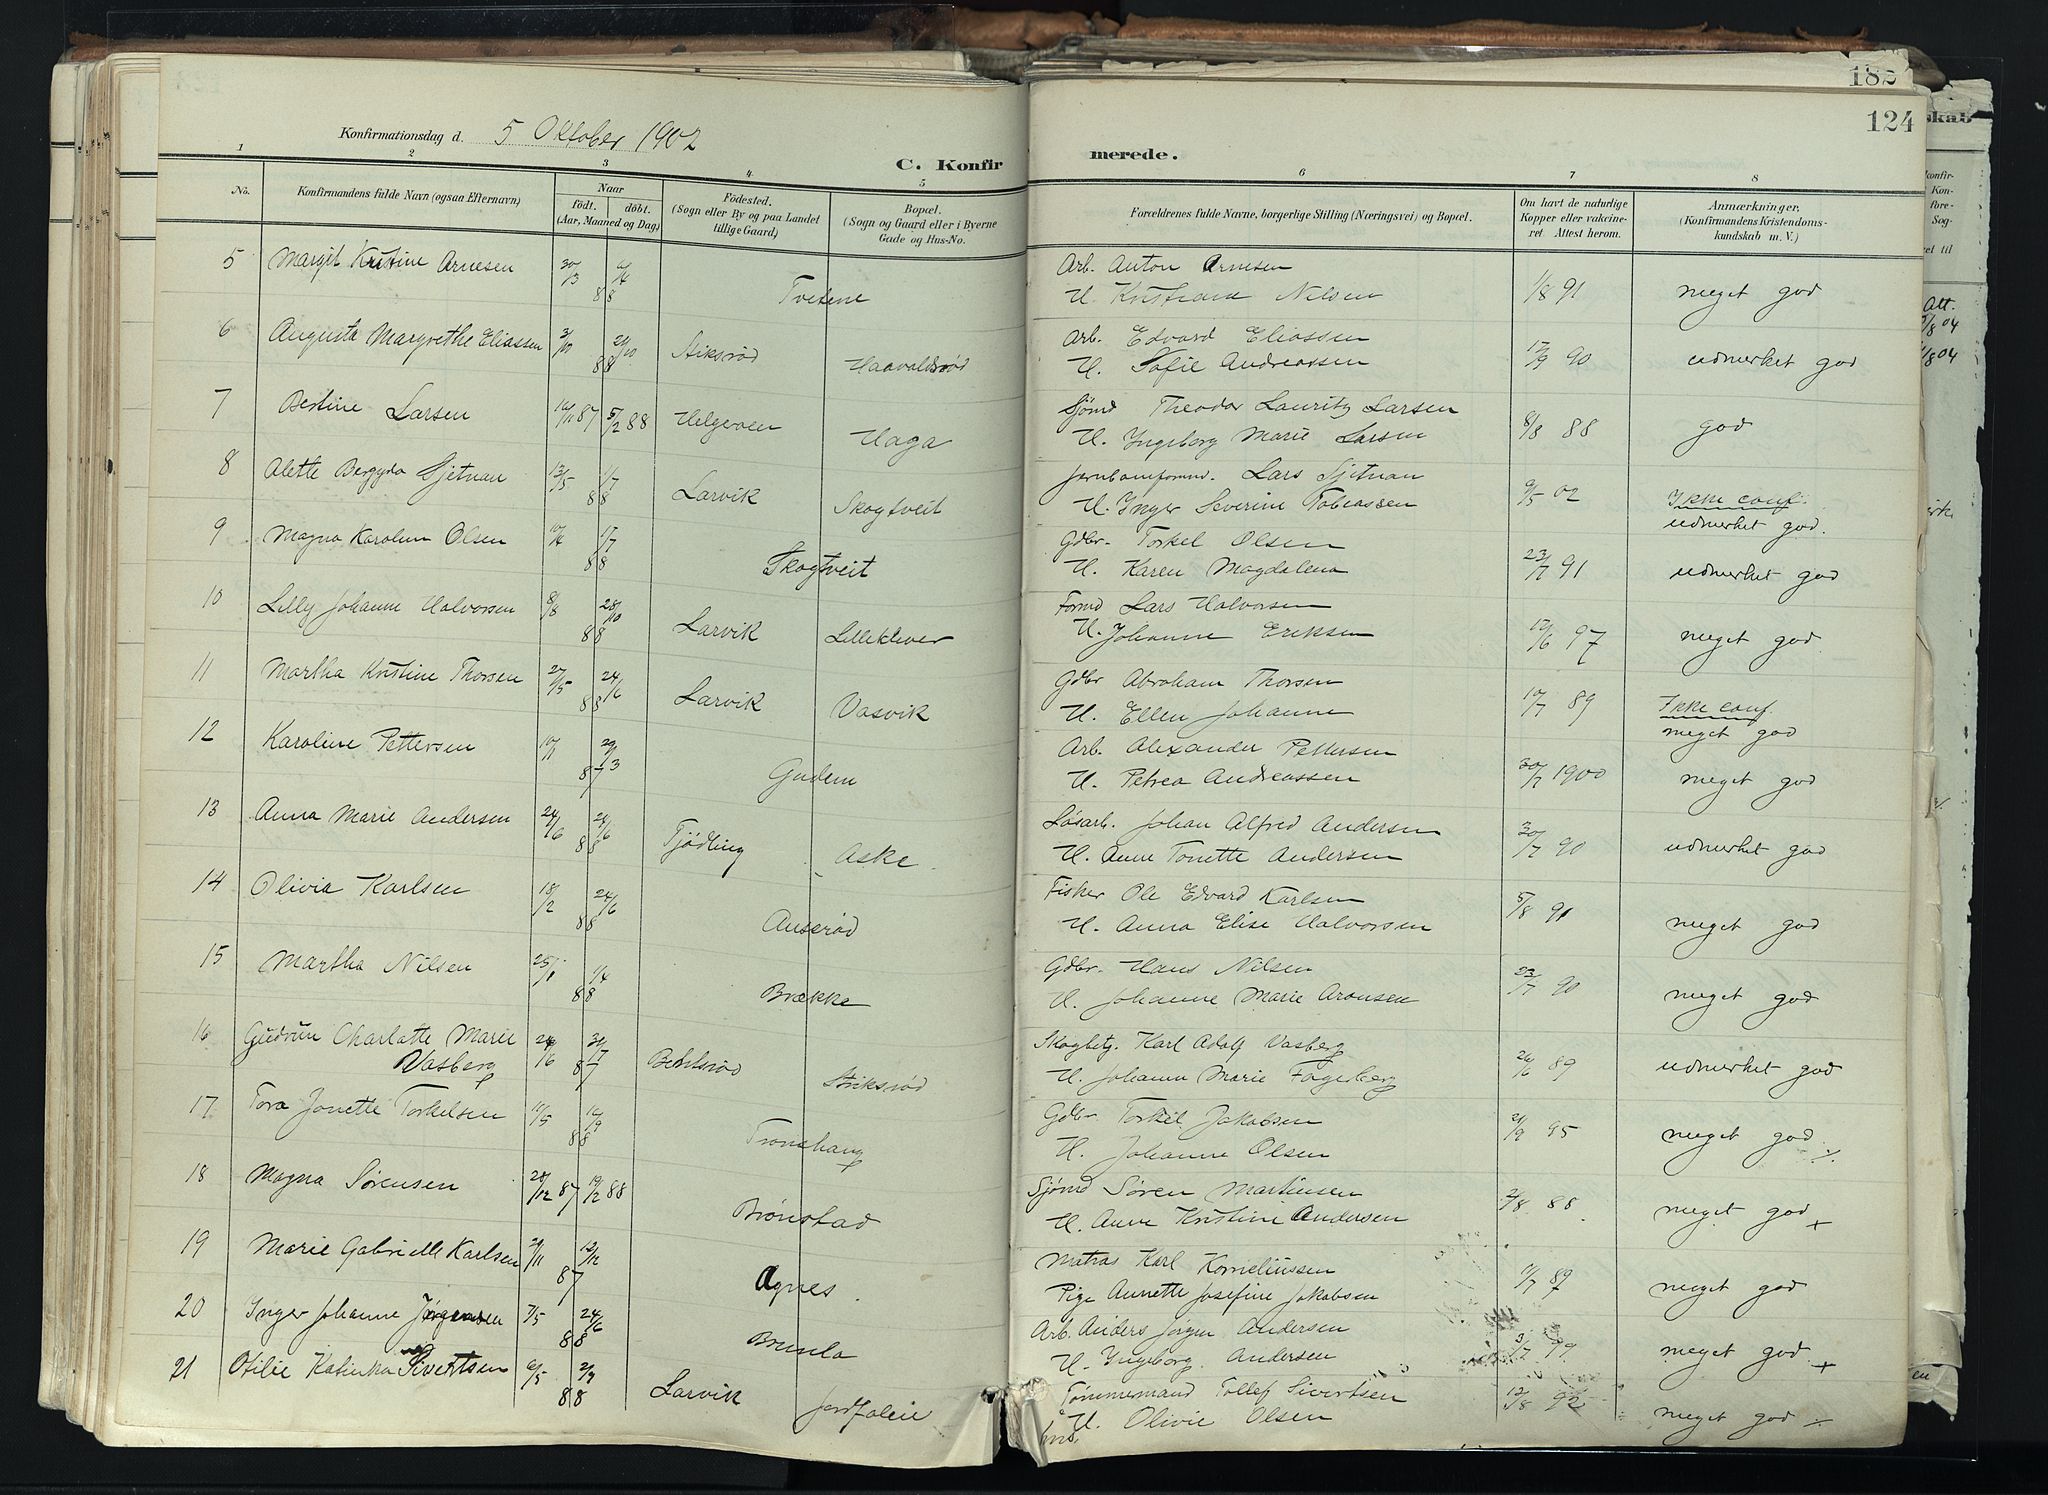 182
124
Konfirmationsdag d. 5 Oktober 1902
C. Konfirmerede.
1 2 3 4 5 6 7 8
No. Konfirmandens fulde Navn (ogsaa Efternavn) Naar födt. döbt. (Aar, Maaned og Dag) Födested. (Sogn eller By og paa Landet tillige Gaard.) Bopæl. (Sogn og Gaard eller i Byerne Gade og Hus-No. Forældrenes fulde Navne, borgerlige Stilling (Næringsvei) og Bopæl. Om havt de naturlige Kopper eller vakcineret. Attest herom. Anmærkninger, (Konfirmandens Kristendomskundskab m. V.)
5 Margit Kristine Arnesen 30/3 88 Tvetene Arb. Anton Arnesen 1/8 91 meget god
H. Kristiane Nilsen
6 Augusta Margrethe Eliassen 88 Stiksröd Haavaldsröd Arb. Edvard Eliassen 17/9 90 udmerket god
H. Sofie Andreassen
7 Bertine Larsen 16/11 87 5/2 88 Helgeroen Haga Sjömd Theodor Lauritz Larsen 8/8 88 god
H. Ingeborg Marie Larsen
8 Alette Bergyda Sjetnan 13/5 1/7 88 Larvik Skogtveit Jernbaneformd. Lars Sjetnan 9/5 02 Ikke conf.
H. Inger Severine Tobiassen udmerket god.
9 Magna Karoline Olsen 10/4 1/7 88 Skogtveit Gdbr. Torkel Olsen 23/7 91 udmerket god
H. Karen Magdalena
10 Lilly Johanne Halvorsen 8/8 28/10 88 Larvik Lilleklever Formd Lars Halvorsen 17/6 97 meget god
H. Johanne Eriksen
11 Martha Kristine Thorsen 27/5 24/6 88 Larvik Vasvik Gdbr Abraham Thorsen 10/7 89 Ikke conf.
H. Ellen Johanne meget god
12 Karoline Pettersen 10/1 29/3 87 Gudem Arb. Alexander Pettersen 30/7 1900 meget god
H. Petrea Andreassen
13 Anna Marie Andersen 24/6 88 Tjödling Aske Lösarb. Johan Alfred Andersen 30/7 90 udmerket god
H. Anne Tonette Andersen
14 Olivia Karlsen 18/2 24/6 88 Auseröd Fisker Ole Edvard Karlsen 5/8 91 meget god
H. Anna Elise Halvorsen
15 Martha Nilsen 25/1 1/4 88 Brække Gdbr. Hans Nilsen 23/7 90 meget god
H. Johanne Marie Aronsen
16 Gudrun Charlotte Marie Vasberg 87 Berntsröd Stiksröd Skogbetj. Karl Adolf Vasberg 26/6 89 udmerket god
H. Johanne Marie Fagerberg
17 Tora Jonette Torkelsen 88 Tronehaug Gdbr Torkil Jakobsen 21/9 95 meget god
H. Johanne Olsen
18 Magna Sörensen 28/12 87 19/2 88 Brönstad Sjömd Sören Martinsen 2/8 88 meget god +
H. Anne Kristine Andersen
19 Marie Gabrielle Karlsen 29/11 12/12 87 Agnes. Matros Karl Korneliussen 11/7 89 meget god
Pige Annette Josefine Jakobsen
20 Inger Johanne Jörgensen 7/5 24/6 88 Brunla Arb. Anders Jörgen Andersen 3/7 99 meget god +
H. Ingeborg Andersen
21 Otilie Katinka Sivertsen 6/5 88 Larvik Jordfaleie Tömmermand Tollef Sivertsen 12/8 92 meget god
H. Olivie Olsen